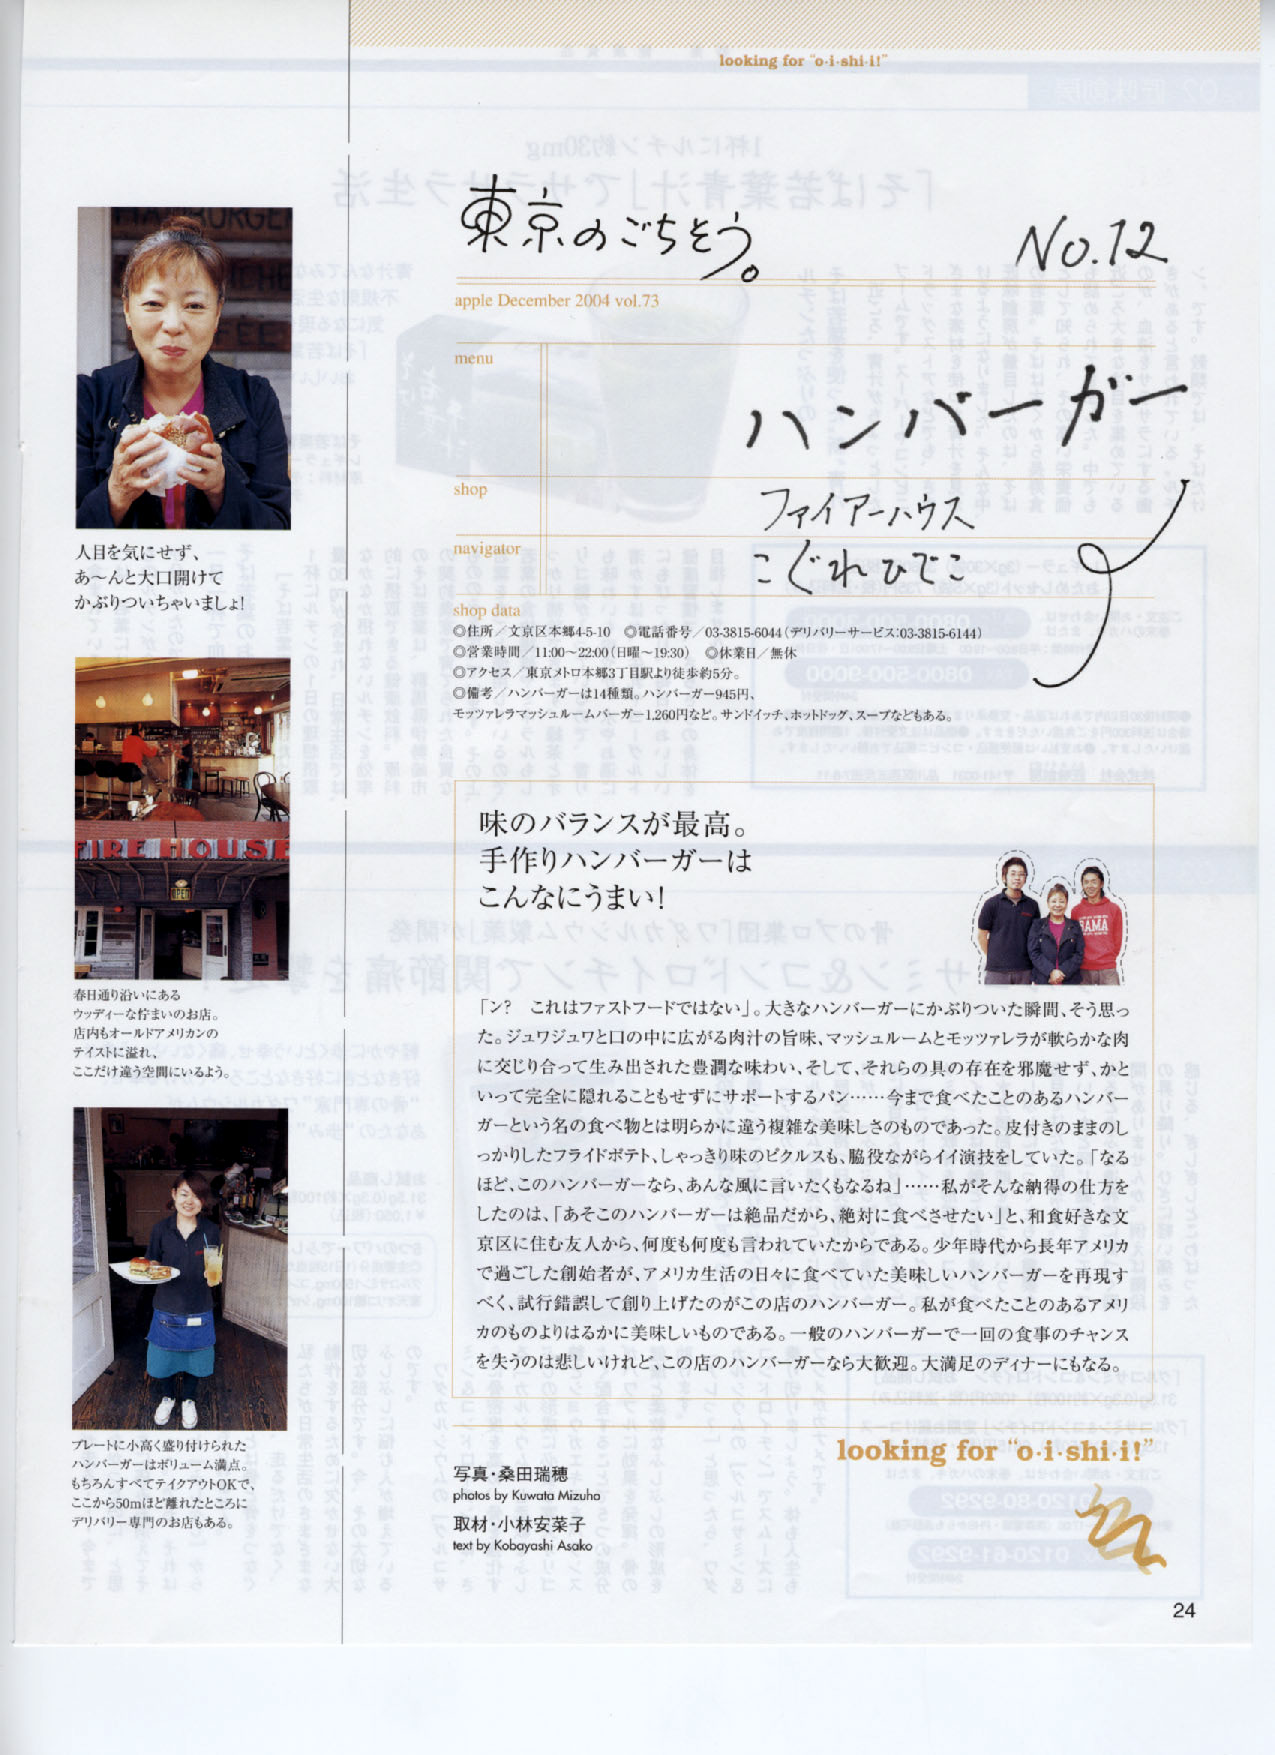 looking for "o·i·shi·i!"
東京のごちそう。
No.12
apple December 2004 vol.73
menu
ハンバーガー
shop
ファイアーハウス
navigator
こぐれひでこ
shop data
◎住所／文京区本郷4-5-10　◎電話番号／03-3815-6044（デリバリーサービス:03-3815-6144）
◎営業時間／11:00〜22:00（日曜〜19:30）　◎休業日／無休
◎アクセス／東京メトロ本郷3丁目駅より徒歩約5分。
◎備考／ハンバーガーは14種類。ハンバーガー945円、
モッツァレラマッシュルームバーガー1,260円など。サンドイッチ、ホットドッグ、スープなどもある。
人目を気にせず、
あ〜んと大口開けて
かぶりついちゃいましょ!
FIRE HOUSE
春日通り沿いにある
ウッディーな佇まいのお店。
店内もオールドアメリカンの
テイストに溢れ、
ここだけ違う空間にいるよう。
プレートに小高く盛り付けられた
ハンバーガーはボリューム満点。
もちろんすべてテイクアウトOKで、
ここから50mほど離れたところに
デリバリー専門のお店もある。
味のバランスが最高。
手作りハンバーガーは
こんなにうまい!
「ン?　これはファストフードではない」。大きなハンバーガーにかぶりついた瞬間、そう思っ
た。ジュワジュワと口の中に広がる肉汁の旨味、マッシュルームとモッツァレラが軟らかな肉
に交じり合って生み出された豊潤な味わい、そして、それらの具の存在を邪魔せず、かと
いって完全に隠れることもせずにサポートするパン……今まで食べたことのあるハンバー
ガーという名の食べ物とは明らかに違う複雑な美味しさのものであった。皮付きのままのし
っかりしたフライドポテト、しゃっきり味のピクルスも、脇役ながらイイ演技をしていた。「なる
ほど、このハンバーガーなら、あんな風に言いたくもなるね」……私がそんな納得の仕方を
したのは、「あそこのハンバーガーは絶品だから、絶対に食べさせたい」と、和食好きな文
京区に住む友人から、何度も何度も言われていたからである。少年時代から長年アメリカ
で過ごした創始者が、アメリカ生活の日々に食べていた美味しいハンバーガーを再現す
べく、試行錯誤して創り上げたのがこの店のハンバーガー。私が食べたことのあるアメリ
カのものよりはるかに美味しいものである。一般のハンバーガーで一回の食事のチャンス
を失うのは悲しいけれど、この店のハンバーガーなら大歓迎。大満足のディナーにもなる。
looking for "o·i·shi·i!"
写真・桑田瑞穂
photos by Kuwata Mizuho
取材・小林安菜子
text by Kobayashi Asako
24